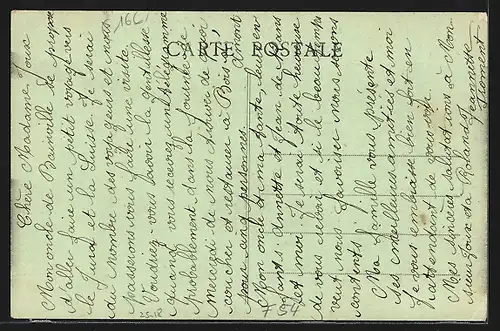 CARTE POSTALE
Chère Madame Joux
Mon oncle de Bainville se propose
d'aller faire un petit voyage vers
le Jura et la Suisse et je serai
du nombre des voyageurs et nous
passerons vous faire une visite.
Voudriez-vous avoir la gentillesse
quand vous recevrez un télégramme
probablement dans la journée de
mercredi de nous retenir de quoi
coucher et restaurer à Bois d'Amont
pour cinq personnes.
Mon oncle et ma tante, leurs
enfants Annette et Jean
et moi. Je serai toute heureuse
de vous revoir et si le beau temps
veut nous favoriser nous serons
contents.
Ma famille vous présente
ses meilleures amitiés et moi
je vous embrasse bien fort en
attendant de vous voir.
Mes sincères salutations à Mon-
sieur Joux et à Rolande.
Jeannette
166
F 54